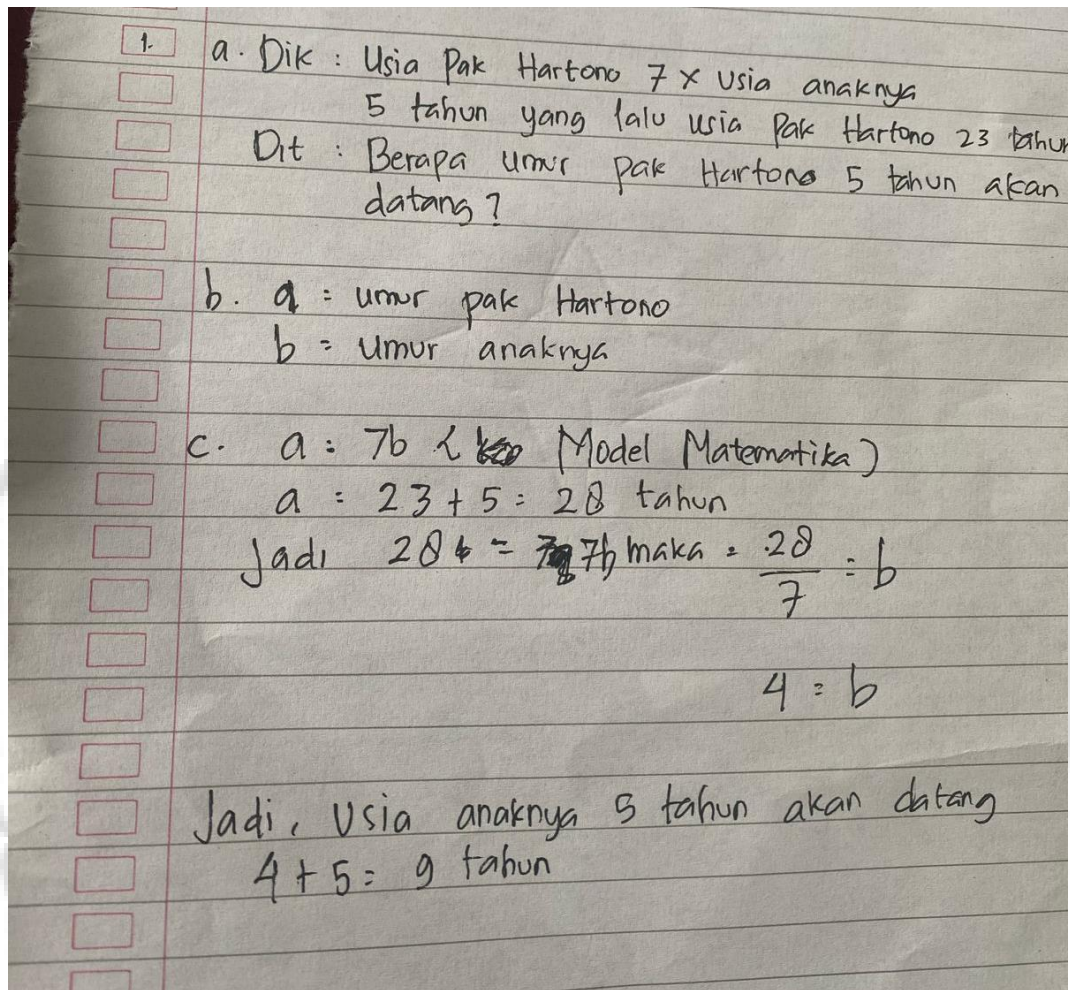 1. a. Dik : Usia Pak Hartono 7 x usia anaknya
5 tahun yang lalu usia Pak Hartono 23 tahun
Dit : Berapa umur pak Hartono 5 tahun akan
datang ?
b. a = umur pak Hartono
b = Umur anaknya
c. a = 7b ( Model Matematika )
a = 23 + 5 = 28 tahun
Jadi 28 = 7b maka = 28/7 = b
4 = b
Jadi, Usia anaknya 5 tahun akan datang
4 + 5 = 9 tahun